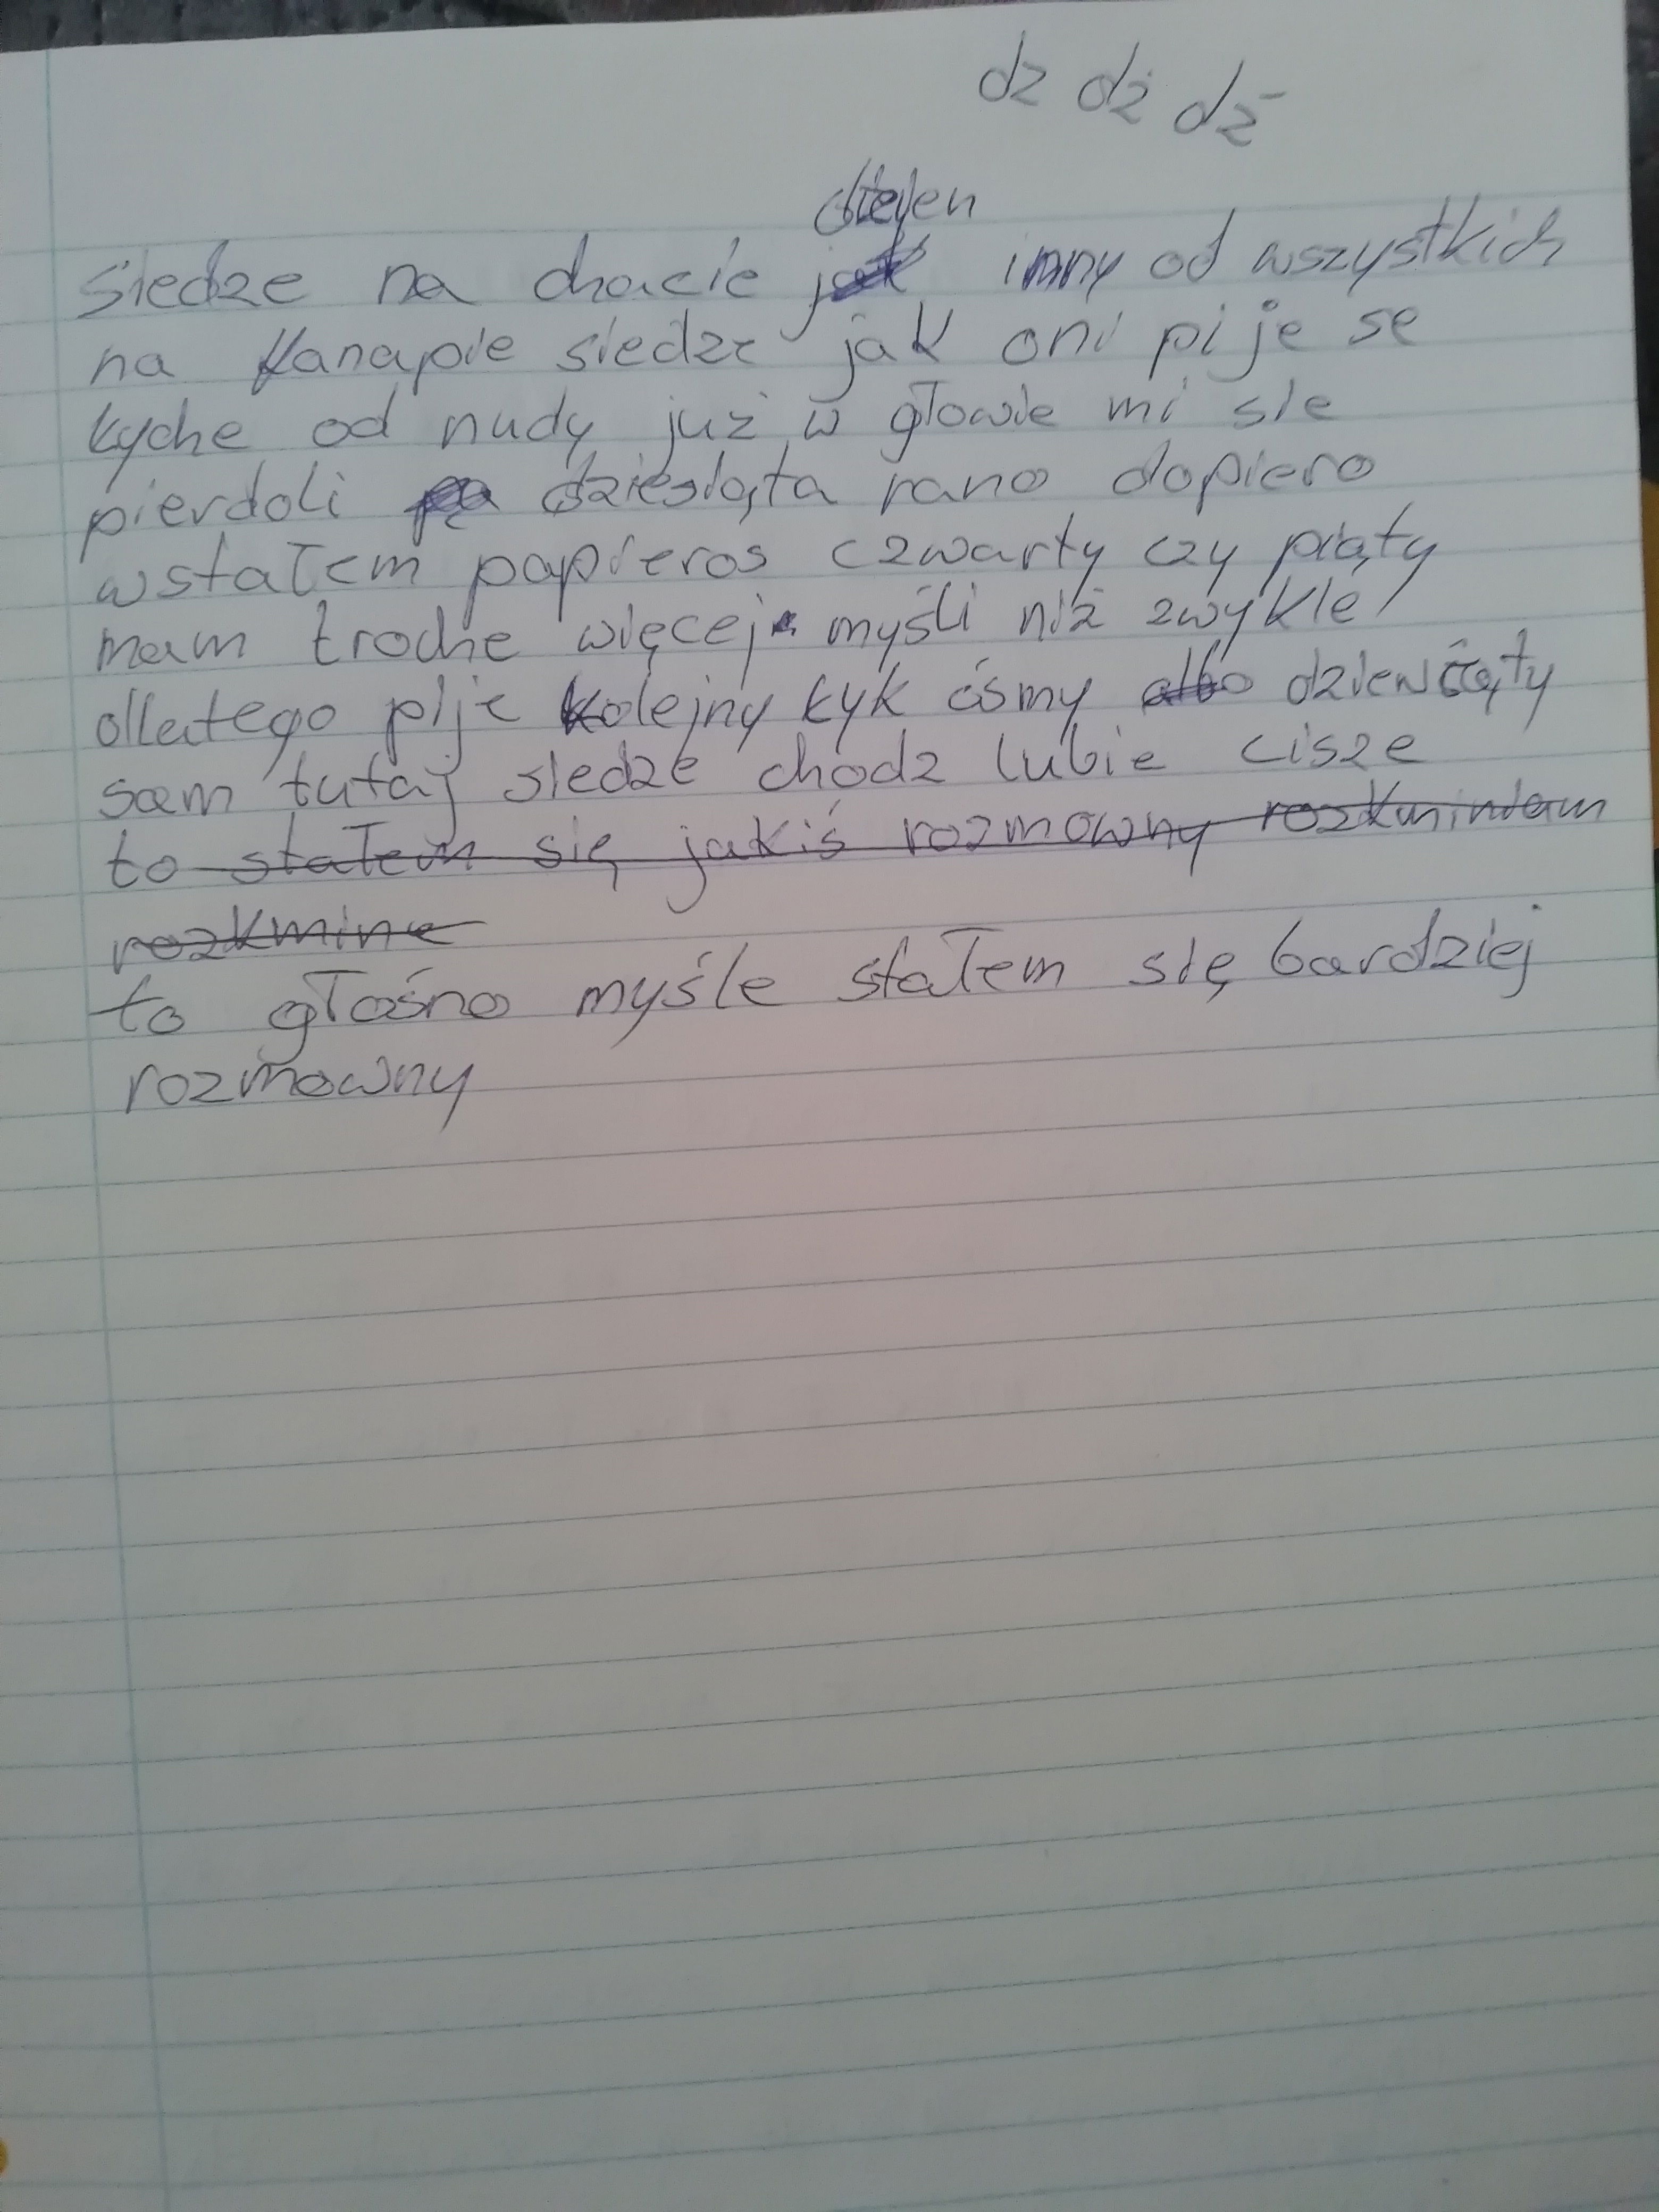 dz dż dź
dzień
siedze na chacie jak inny od wszystkich
na kanapie siedze jak oni pije se
łyche od nudy już w głowie mi sie
pierdoli dziesiąta rano dopiero
wstałem papieros czwarty czy piąty
mam troche więcej myśli niż zwykle
dlatego pije kolejny łyk ósmy albo dziewiąty
sam tutaj siedze chodz lubie cisze
to stałem się jakiś rozmowny rozkminiam
rozkmine
to głośno myśle stałem się bardziej
rozmowny